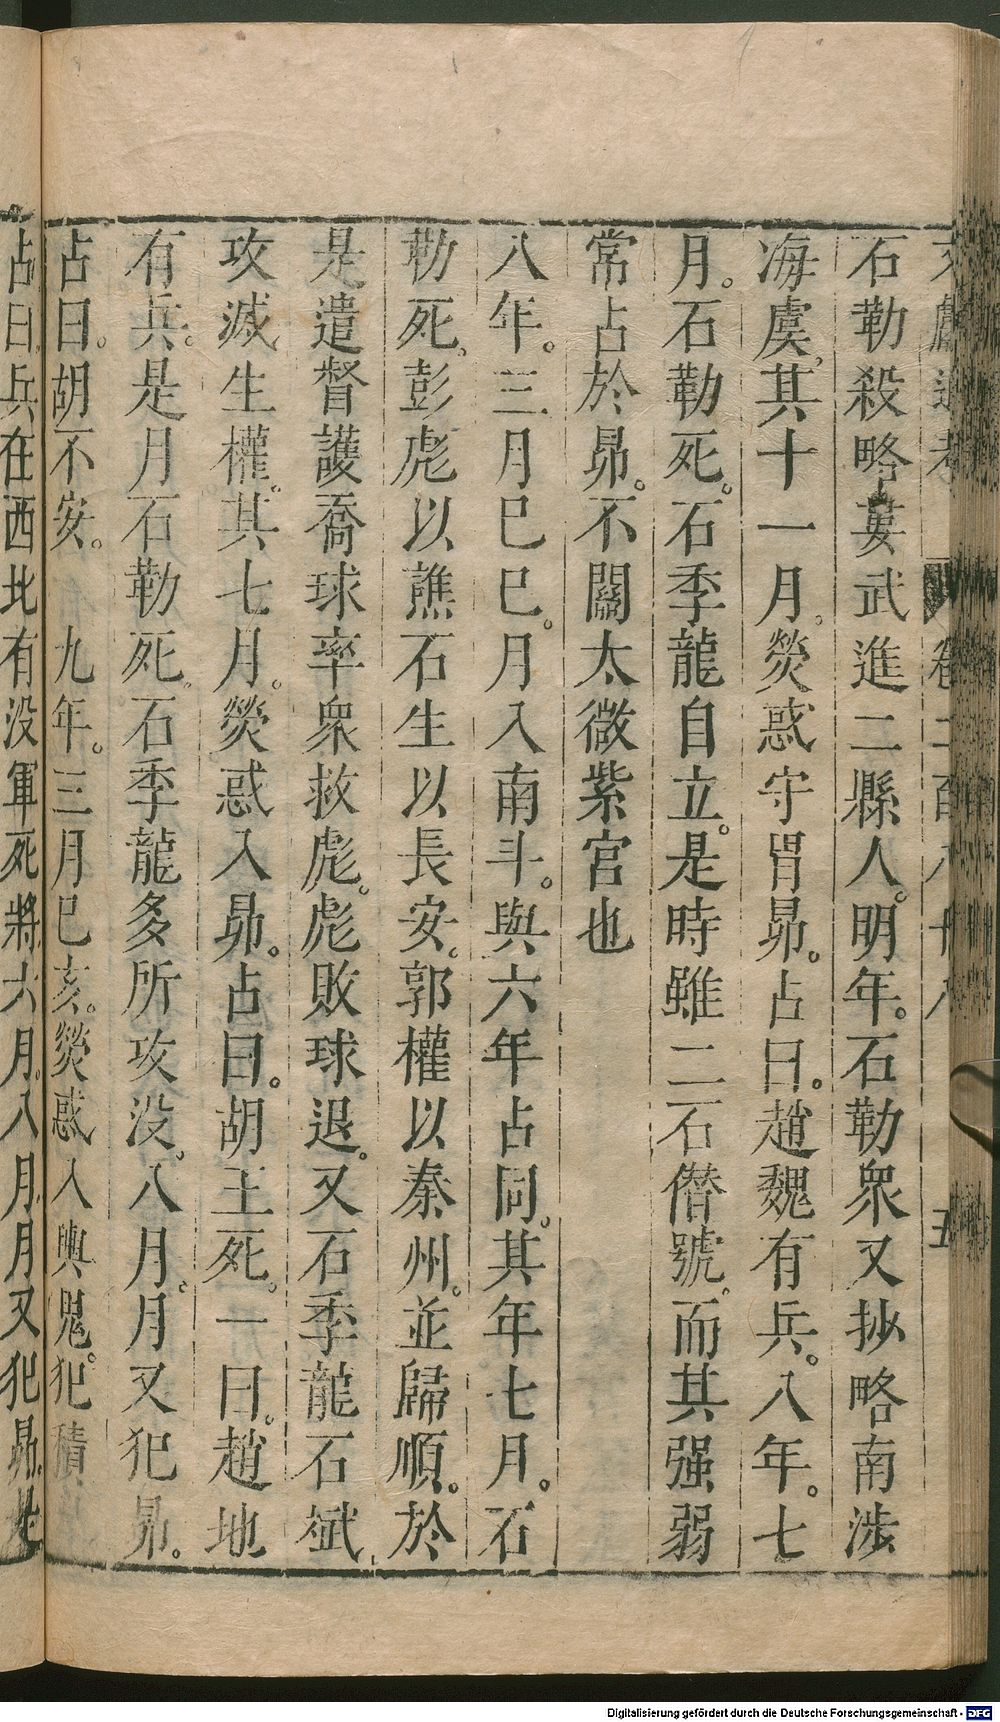 石勒殺略婁武進二縣人。明年。石勒眾又抄略南涉
海虞。其十一月。熒惑守胃昴。占曰。趙魏有兵。八年。七
月。石勒死。石季龍自立。是時雖二石僭號。而其强弱
常占於昴。不關太微紫宮也
八年。三月巳巳。月入南斗。與六年占同。其年七月。石
勒死。彭彪以譙石生以長安。郭權以秦州。並歸順。於
是遣督護喬球率眾救彪。彪敗球退。又石季龍石斌
攻滅生權。其七月。熒惑入昴。占曰。胡王死。一曰。趙地
有兵。是月石勒死。石季龍多所攻没。八月。月又犯昴。
占曰。胡不安。九年。三月巳亥。熒惑入輿鬼。犯積
占曰。兵在西北有没軍死將六月。八月月又犯昴。是
Digitalisierung gefördert durch die Deutsche Forschungsgemeinschaft - DFG